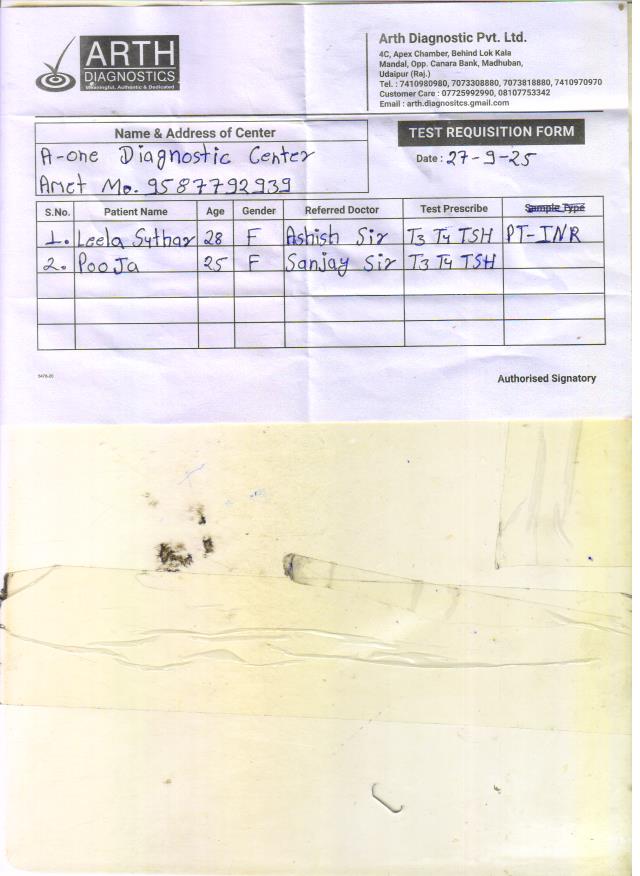 ARTH
DIAGNOSTICS
Meaningful, Authentic & Dedicated
Arth Diagnostic Pvt. Ltd.
4C, Apex Chamber, Behind Lok Kala
Mandal, Opp. Canara Bank, Madhuban,
Udaipur (Raj.)
Tel. : 7410980980, 7073308880, 7073818880, 7410970970
Customer Care : 07725992990, 08107753342
Email : arth.diagnositcs.gmail.com
Name & Address of Center
A-one Diagnostic Center
Amet Mo. 9587792939
TEST REQUISITION FORM
Date : 27-9-25
S.No. Patient Name Age Gender Referred Doctor Test Prescribe Sample Type
1. Leela Suthar 28 F Ashish Sir T3 T4 TSH PT-INR
2. Pooja 25 F Sanjay Sir T3 T4 TSH
Authorised Signatory